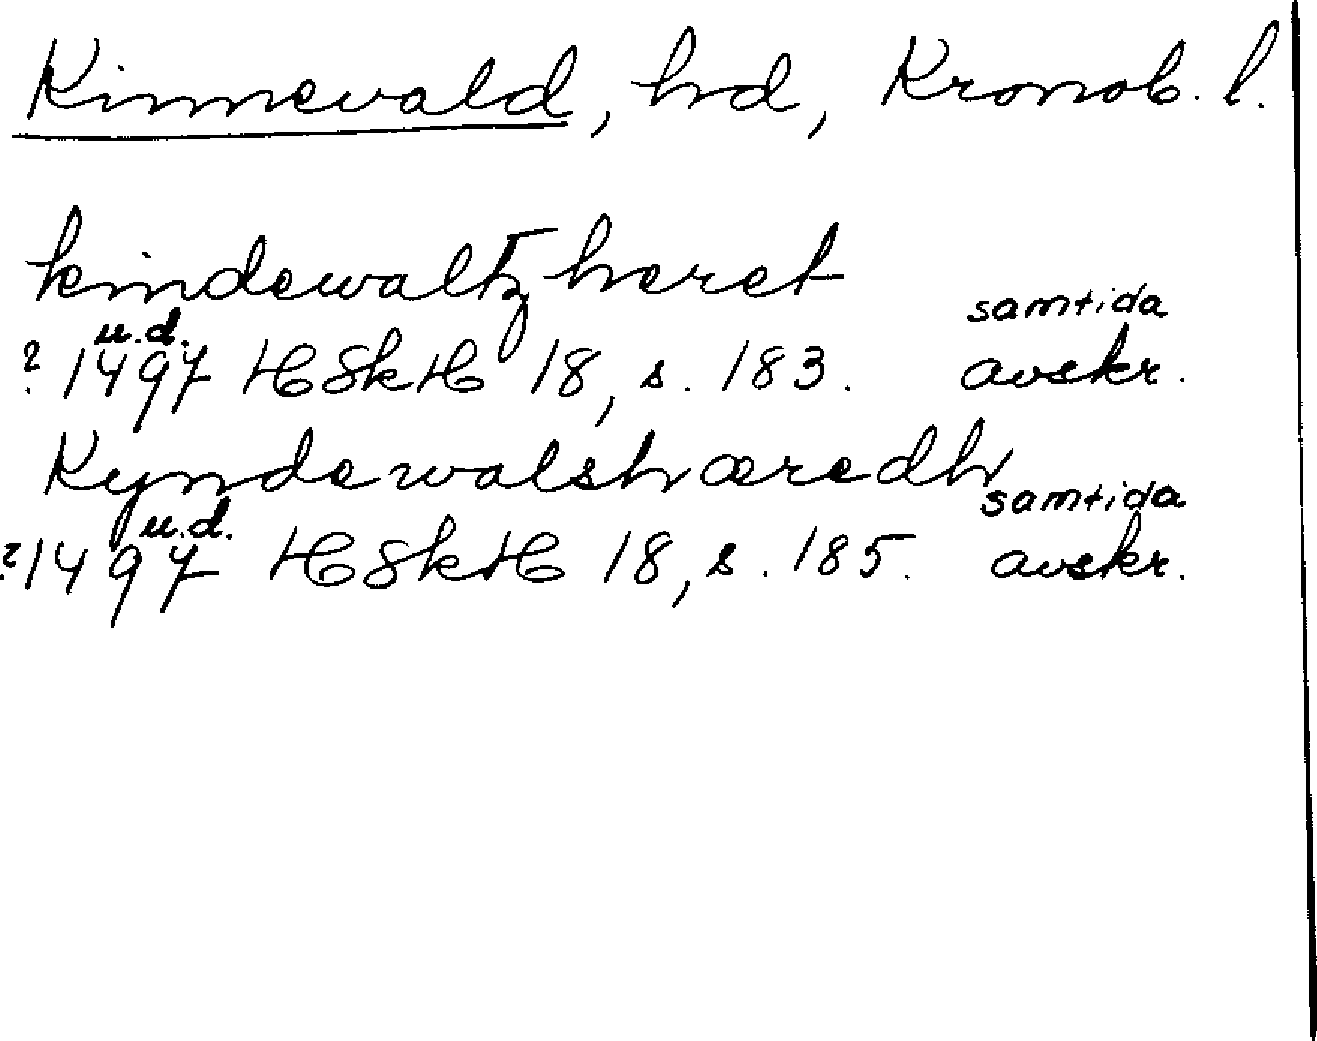 Kinnevald, hd, Kronob. l.
kindewaltz heret
samtida
u.d.
? 1497 HSkH 18, s. 183. avskr.
Kyndewalshæredh
samtida
u.d.
? 1497 HSkH 18, s. 185. avskr.